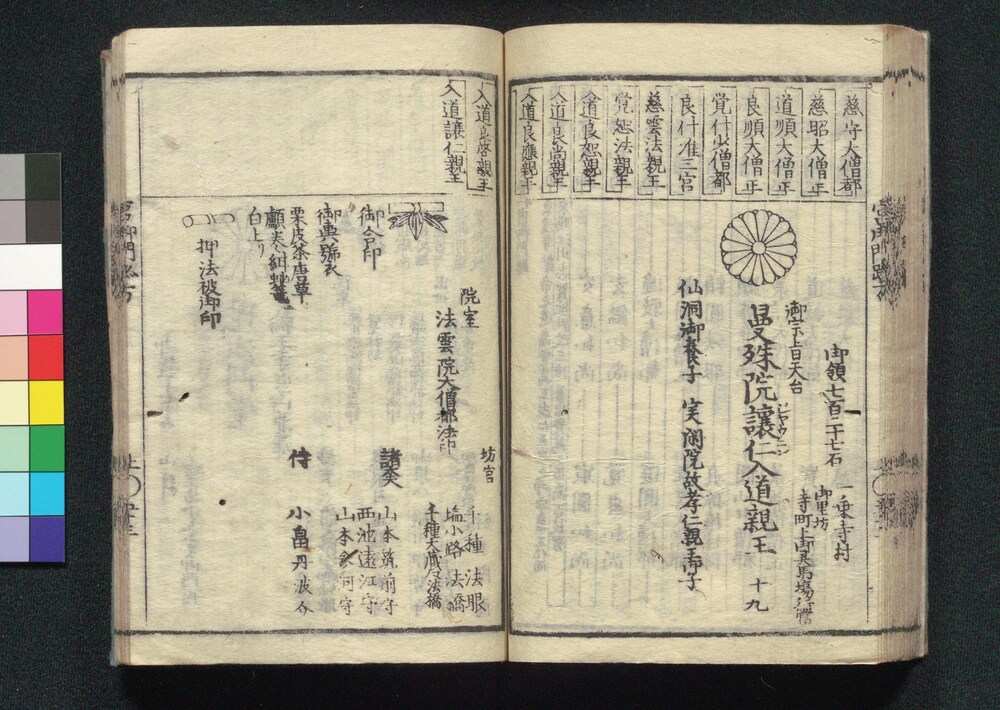 慈守大僧都
慈昭大僧正
道順大僧正
良順大僧正
覚什少僧都
良什准三宮
慈雲法親王
覚恕法親王
入道良恕親王
入道良尚親王
入道良應親王
御領七百二十七石
一乗寺村
御里坊
御宗旨天台
曼殊院讓仁入道親王 十九
仙洞御養子 実閑院故孝仁親王御子
入道良啓親王
入道讓仁親王
院室
法雲院大僧都法印
坊官
千種 法眼
塩小路 法橋
千種大蔵 法橋
諸大夫
山本筑前守
西池遠江守
山本参河守
侍
小畠丹波介
御合印
御輿號衣
栗皮茶唐草
白上り
押法被御印